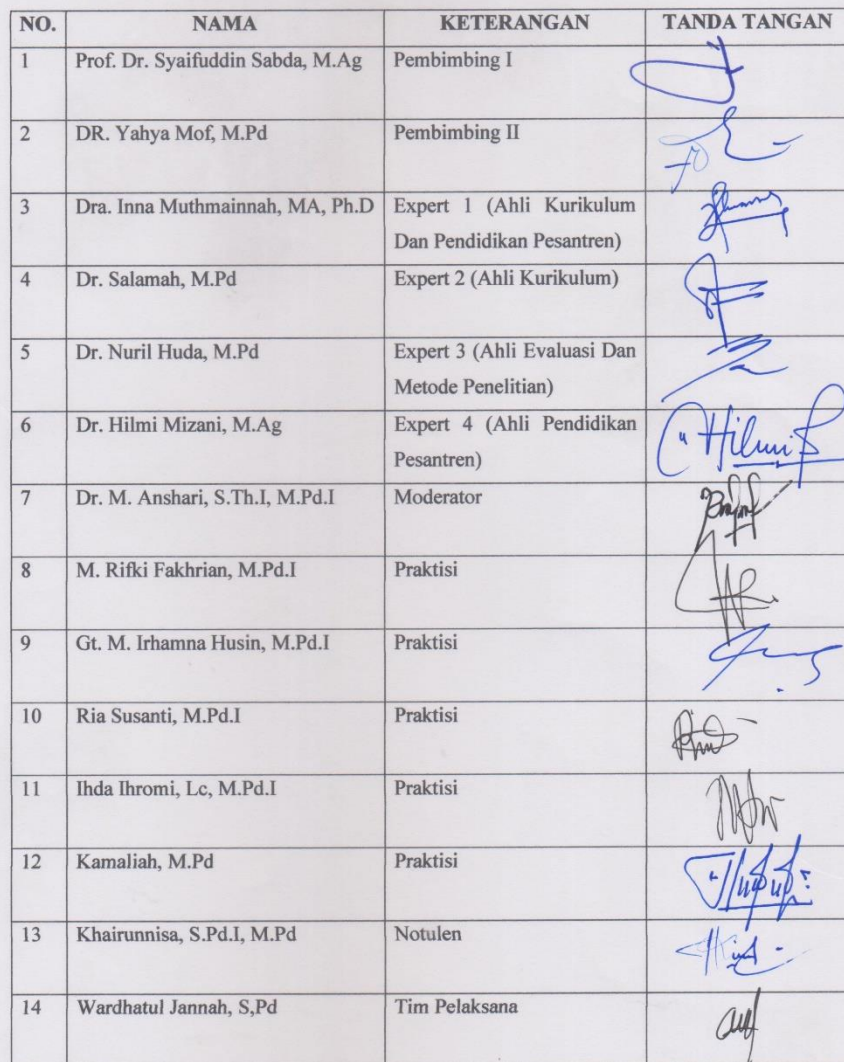 NO. NAMA KETERANGAN TANDA TANGAN
1 Prof. Dr. Syaifuddin Sabda, M.Ag Pembimbing I
2 DR. Yahya Mof, M.Pd Pembimbing II
3 Dra. Inna Muthmainnah, MA, Ph.D Expert 1 (Ahli Kurikulum
Dan Pendidikan Pesantren)
4 Dr. Salamah, M.Pd Expert 2 (Ahli Kurikulum)
5 Dr. Nuril Huda, M.Pd Expert 3 (Ahli Evaluasi Dan
Metode Penelitian)
6 Dr. Hilmi Mizani, M.Ag Expert 4 (Ahli Pendidikan
Pesantren)
Hilmi
7 Dr. M. Anshari, S.Th.I, M.Pd.I Moderator
8 M. Rifki Fakhrian, M.Pd.I Praktisi
9 Gt. M. Irhamna Husin, M.Pd.I Praktisi
10 Ria Susanti, M.Pd.I Praktisi
11 Ihda Ihromi, Lc, M.Pd.I Praktisi
12 Kamaliah, M.Pd Praktisi
13 Khairunnisa, S.Pd.I, M.Pd Notulen
14 Wardhatul Jannah, S,Pd Tim Pelaksana